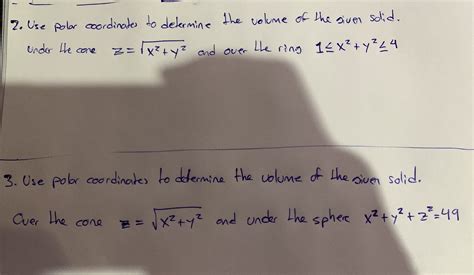 2. Use polar coordinates to determine the volume of the given solid.
Under the cone z = √x² + y² and over the ring 1 ≤ x² + y² ≤ 4
3. Use polar coordinates to determine the volume of the given solid.
Over the cone z = √x² + y² and under the sphere x² + y² + z² = 49